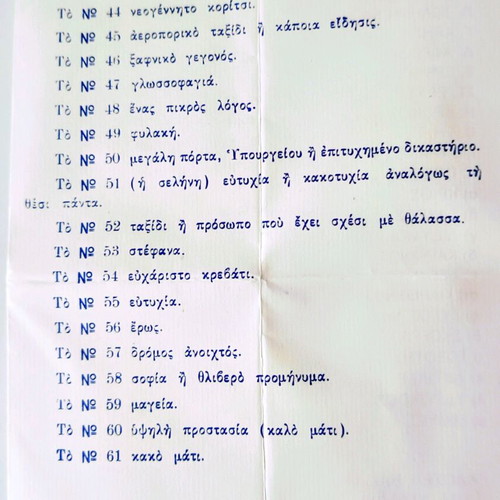 Τὸ № 44 νεογέννητο κορίτσι.
Τὸ № 45 ἀεροπορικὸ ταξίδι ἢ κάποια εἴδησις.
Τὸ № 46 ξαφνικὸ γεγονός.
Τὸ № 47 γλωσσοφαγιά.
Τὸ № 48 ἕνας πικρὸς λόγος.
Τὸ № 49 φυλακή.
Τὸ № 50 μεγάλη πόρτα, Ὑπουργείου ἢ ἐπιτυχημένο δικαστήριο.
Τὸ № 51 (ἡ σελήνη) εὐτυχία ἢ κακοτυχία ἀναλόγως τῇ
θέσι πάντα.
Τὸ № 52 ταξίδι ἢ πρόσωπο ποὺ ἔχει σχέσι μὲ θάλασσα.
Τὸ № 53 στέφανα.
Τὸ № 54 εὐχάριστο κρεβάτι.
Τὸ № 55 εὐτυχία.
Τὸ № 56 ἔρως.
Τὸ № 57 δρόμος ἀνοιχτός.
Τὸ № 58 σοφία ἢ θλιβερὸ προμήνυμα.
Τὸ № 59 μαγεία.
Τὸ № 60 ὑψηλὴ προστασία (καλὸ μάτι).
Τὸ № 61 κακὸ μάτι.